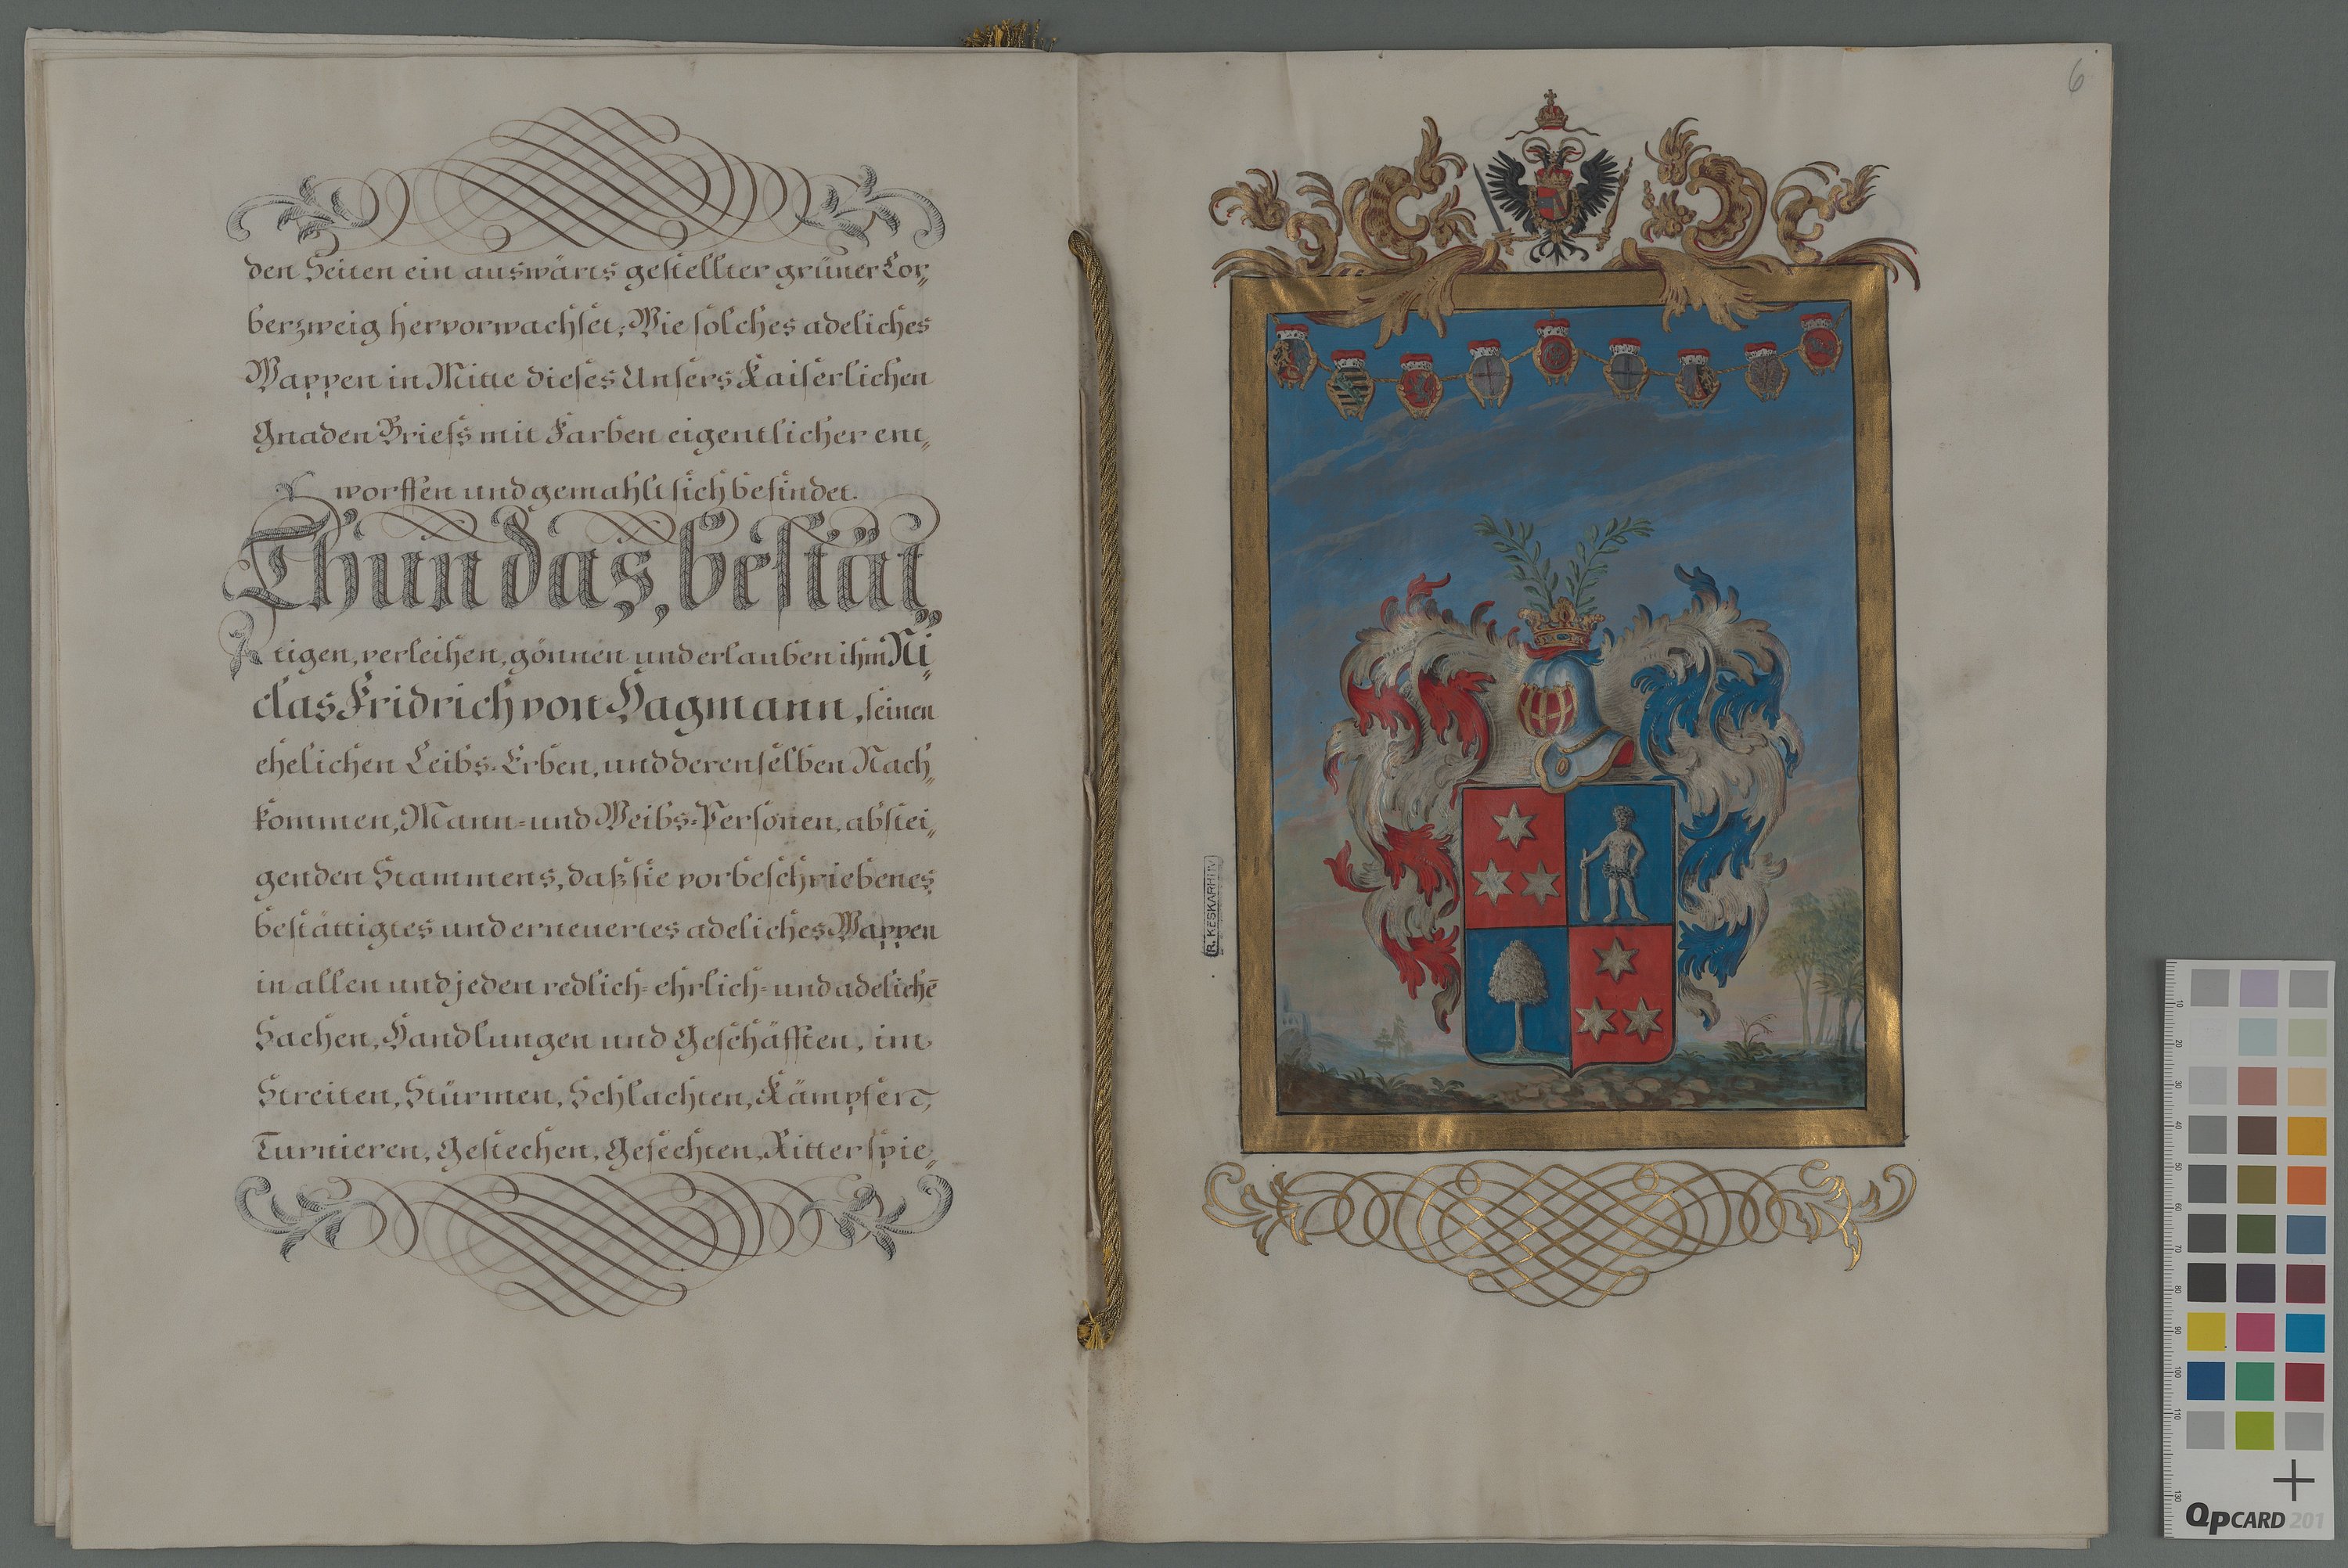 den Seiten ein auswärts gestellter grüner Lor„
berzweig hervorwachset; Wie solches adeliches
Wappen in Mitte dieses Unsers Kaiserlichen
Gnaden Briefs mit Farben eigentlicher ent„
worffen und gemahlt sich befindet.
Thun das, bestät„
tigen, verleihen, gönnen und erlauben ihm Ni„
clas Fridrich von Hagmann, seinen
ehelichen Leibs-Erben, und derenselben Nach„
kommen, Mann- und Weibs-Personen, abstei„
genden Stammens, daß sie vorbeschriebenes
bestättigtes und erneuertes adeliches Wappen
in allen und jeden redlich- ehrlich- und adelichē
Sachen, Handlungen und Geschäfften, im
Streiten, Stürmen, Schlachten, Kämpfen,
Turnieren, Gestechen, Gefechten, Ritterspie„
6
R. KESKARHIIV
10
20
30
40
50
60
70
80
90
100
110
130
QPCARD 201